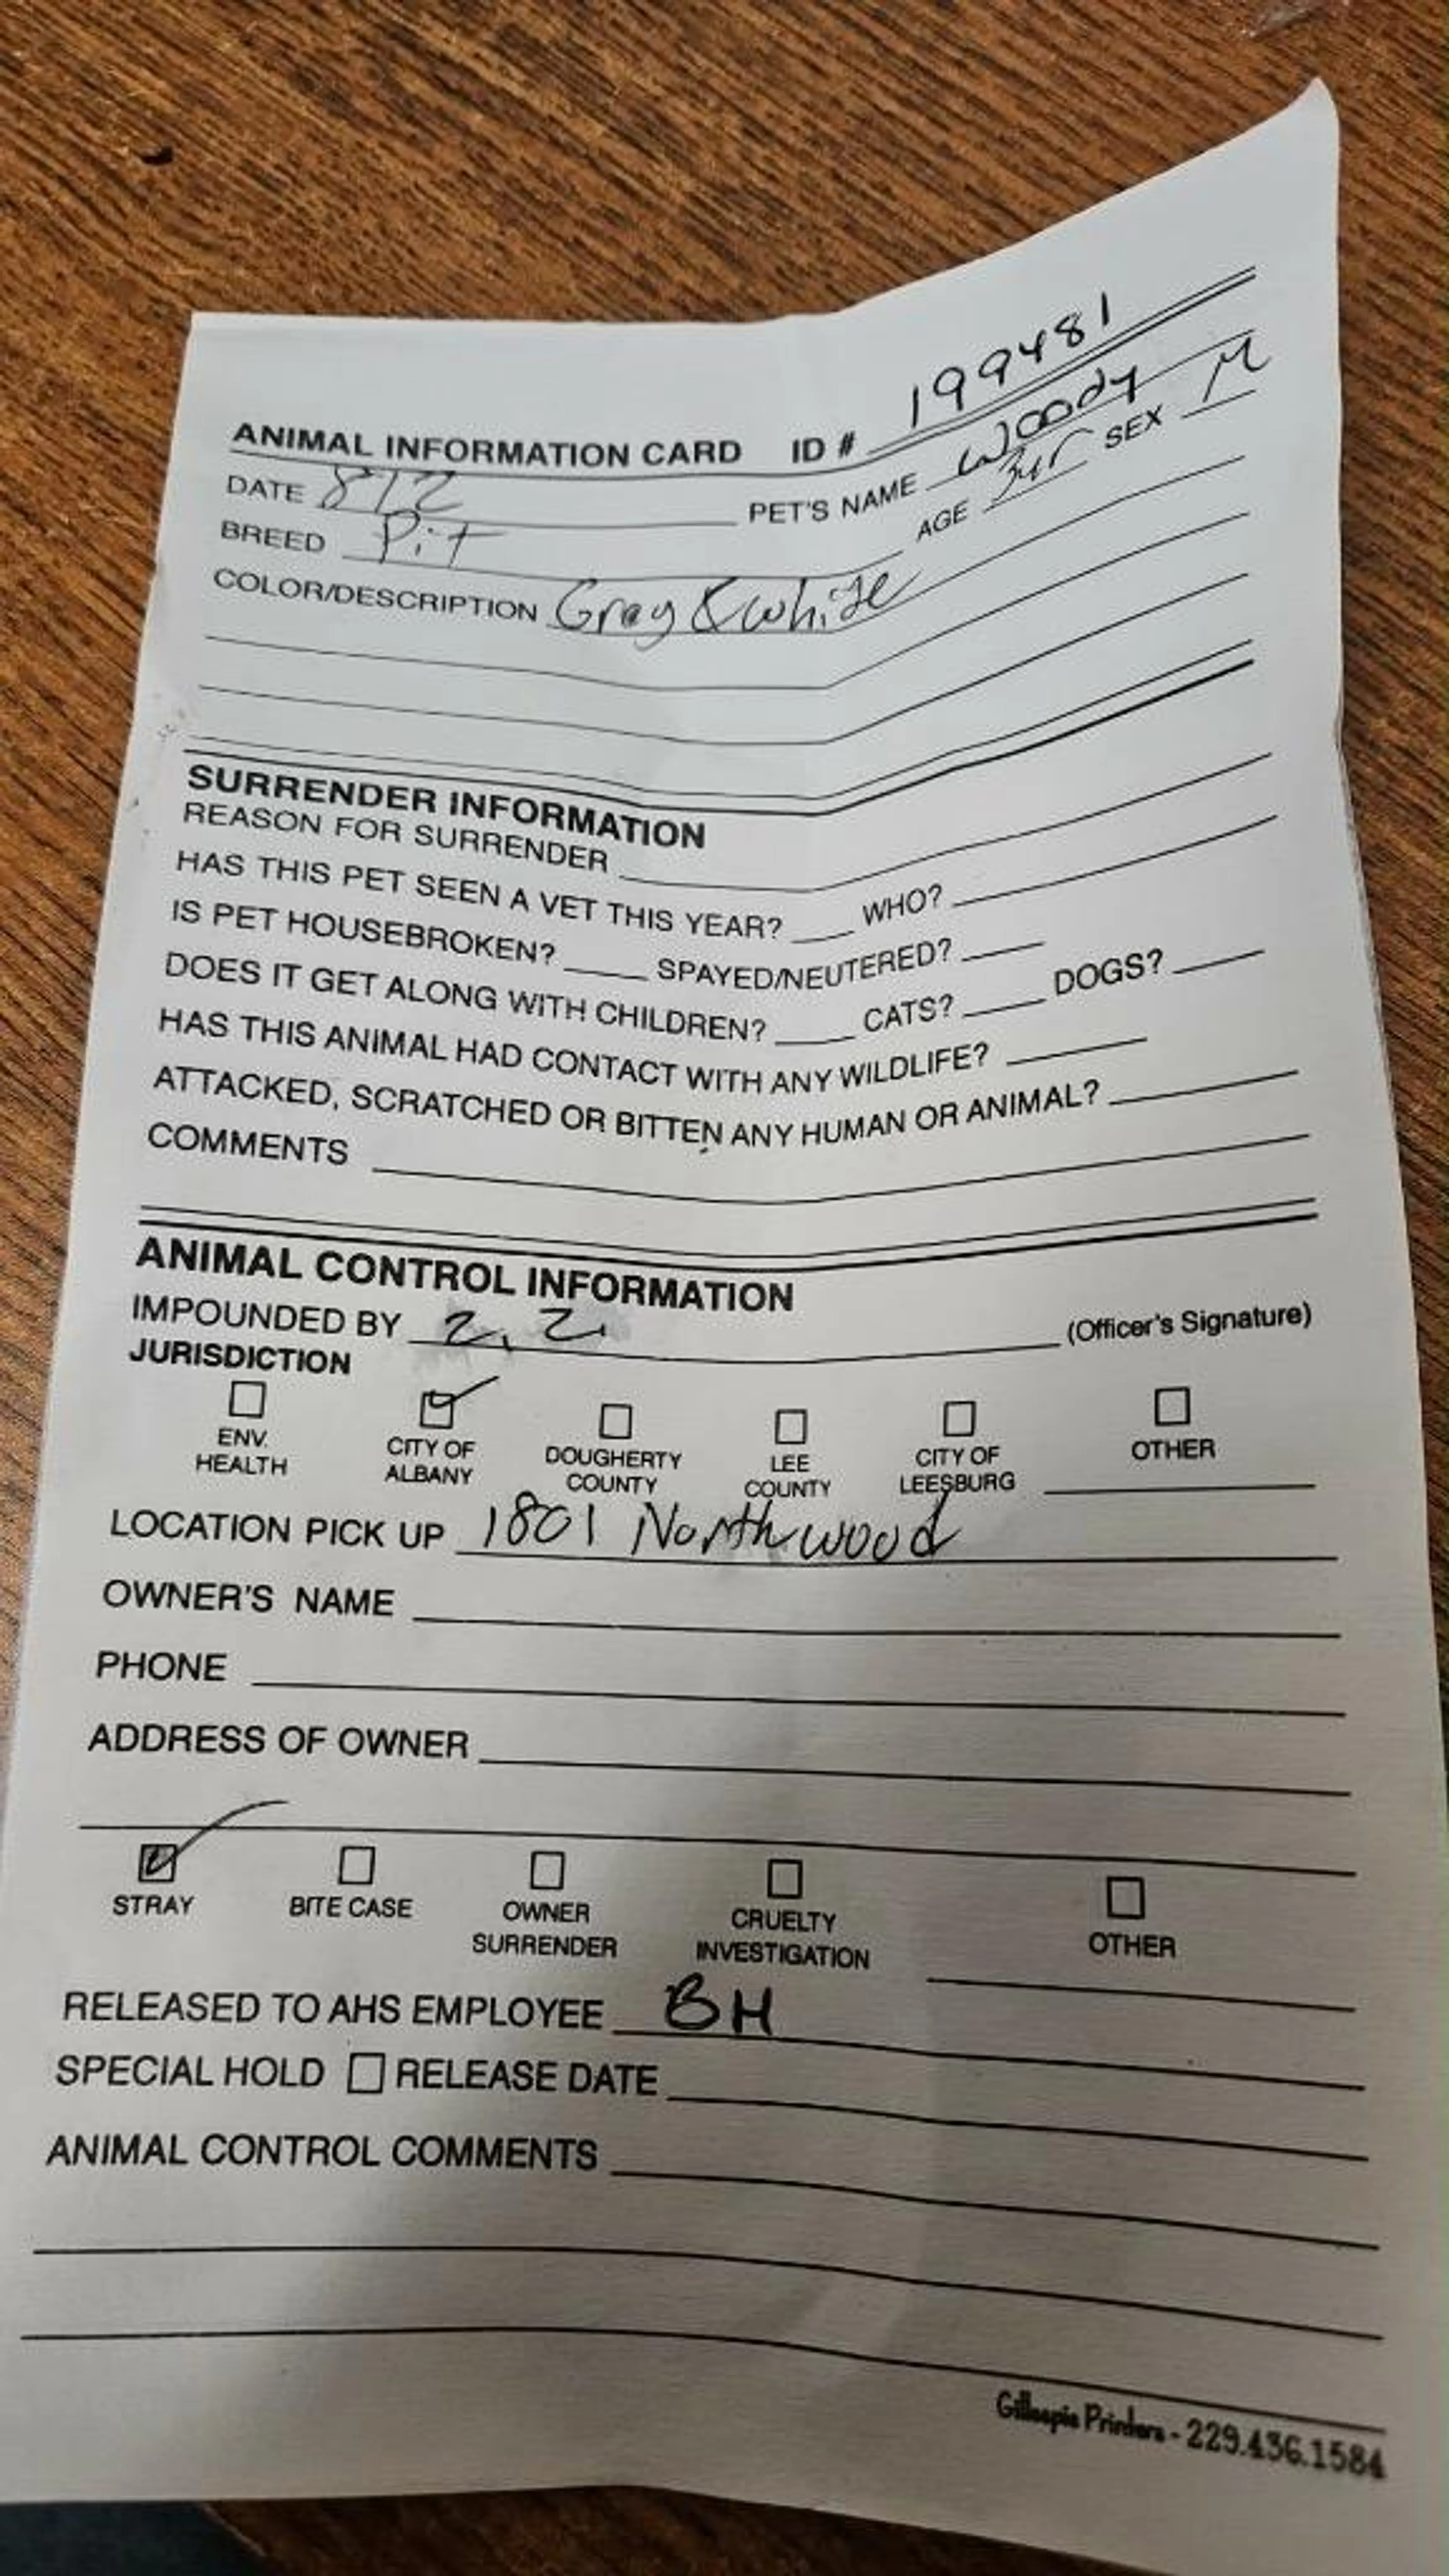 ANIMAL INFORMATION CARD ID # 199481
DATE PET'S NAME Woody
BREED Pit AGE 3yr SEX M
COLOR/DESCRIPTION Gray & white
SURRENDER INFORMATION
REASON FOR SURRENDER
HAS THIS PET SEEN A VET THIS YEAR? WHO?
IS PET HOUSEBROKEN? SPAYED/NEUTERED?
DOES IT GET ALONG WITH CHILDREN? CATS? DOGS?
HAS THIS ANIMAL HAD CONTACT WITH ANY WILDLIFE?
ATTACKED, SCRATCHED OR BITTEN ANY HUMAN OR ANIMAL?
COMMENTS
ANIMAL CONTROL INFORMATION
IMPOUNDED BY (Officer's Signature)
JURISDICTION
ENV. HEALTH CITY OF ALBANY DOUGHERTY COUNTY LEE COUNTY CITY OF LEESBURG OTHER
LOCATION PICK UP 1801 Northwood
OWNER'S NAME
PHONE
ADDRESS OF OWNER
STRAY BITE CASE OWNER SURRENDER CRUELTY INVESTIGATION OTHER
RELEASED TO AHS EMPLOYEE BH
SPECIAL HOLD RELEASE DATE
ANIMAL CONTROL COMMENTS
Gillespie Printers - 229.436.1584